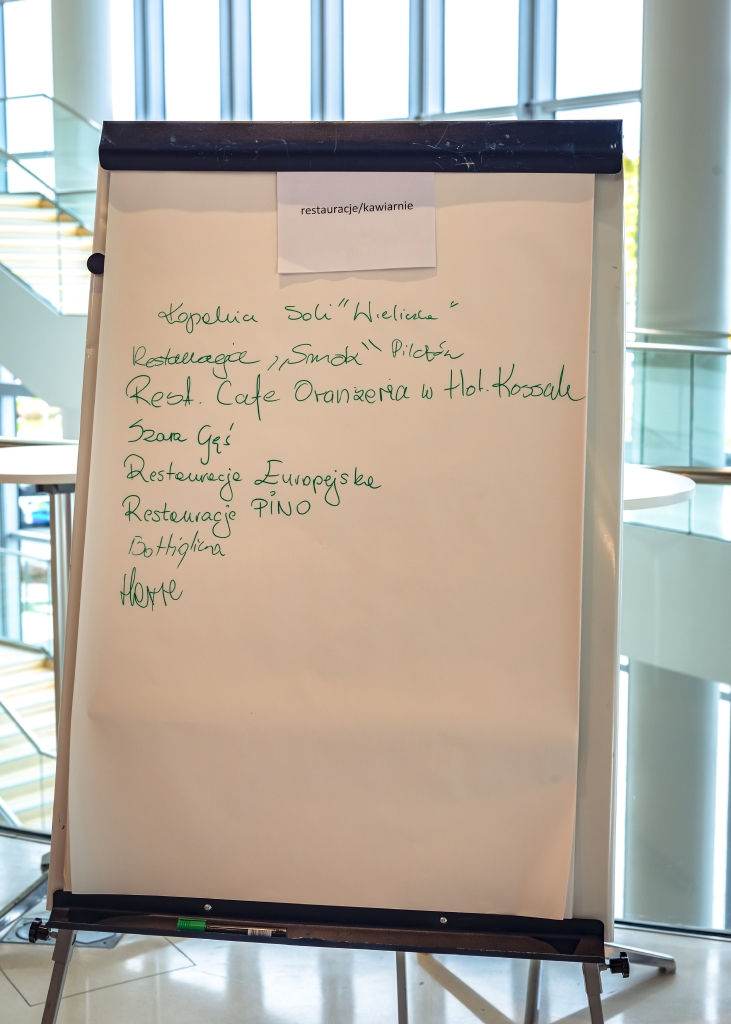 restauracje/kawiarnie
Kopalnia Soli "Wieliczka"
Restauracja „Smak" Pilotów
Rest. Cafe Oranżeria w Hot. Kossak
Szara Gęś
Restauracja Europejska
Restauracje PINO